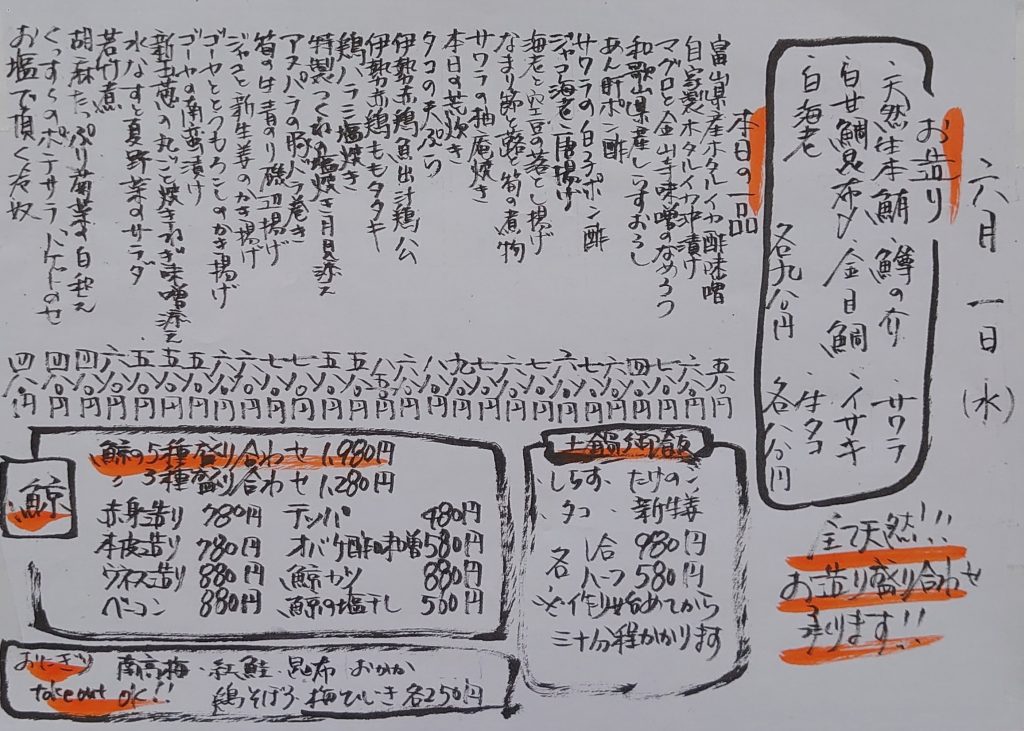 六月一日(水)
お造り
・天然生本鮪・鱒の介・サワラ
・白甘鯛昆布〆・金目鯛・イサキ
・白海老・生タコ
各九八〇円 各八八〇円
全て天然!!!
お造り盛り合わせ
承ります!!
本日の一品
富山県産ホタルイカ酢味噌 五八〇円
自家製ホタルイカ沖漬け 六八〇円
マグロと金山寺味噌のなめろう 七八〇円
和歌山県産しらすおろし 四八〇円
あん肝ポン酢
サワラの白子ポン酢
ジャコ海老唐揚げ
海老と空豆の落とし揚げ
なまり節と蕗と筍の煮物
サワラの柚庵焼き
本日の荒炊き
タコの天ぷら
伊勢赤鶏魚出汁鶏ハム
伊勢赤鶏ももタタキ
鶏ハラミ塩焼き
特製つくねの塩焼き月見添え
アスパラの豚バラ巻き
筍のはさみ青のり磯辺揚げ
ジャコと新生姜のかき揚げ
ゴーヤととうもろこしのかき揚げ
ゴーヤの南蛮漬け
新玉葱の丸ごと焼きねぎ味噌添え
水なすと夏野菜のサラダ
若竹煮
胡麻たっぷり菊菜の白和え
くんすらのポテサラバケットのせ
お塩で頂く冷奴 四八〇円
土鍋御飯
しらす、たけのこ
タコ、新生姜
各 一合 980円
ハーフ 580円
※作り始めてから
三十分程かかります
鯨
鯨の5種盛り合わせ 1,980円
〃 3種盛り合わせ 1,280円
赤身造り 780円 テッパ 480円
本皮造り 780円 オバケ酢味噌 580円
ウネス造り 880円 鯨カツ 880円
ベーコン 880円 鯨の塩干し 580円
おにぎり 南高梅・紅鮭・昆布 おかか
take out OK!! 鶏そぼろ・梅ひじき 各250円